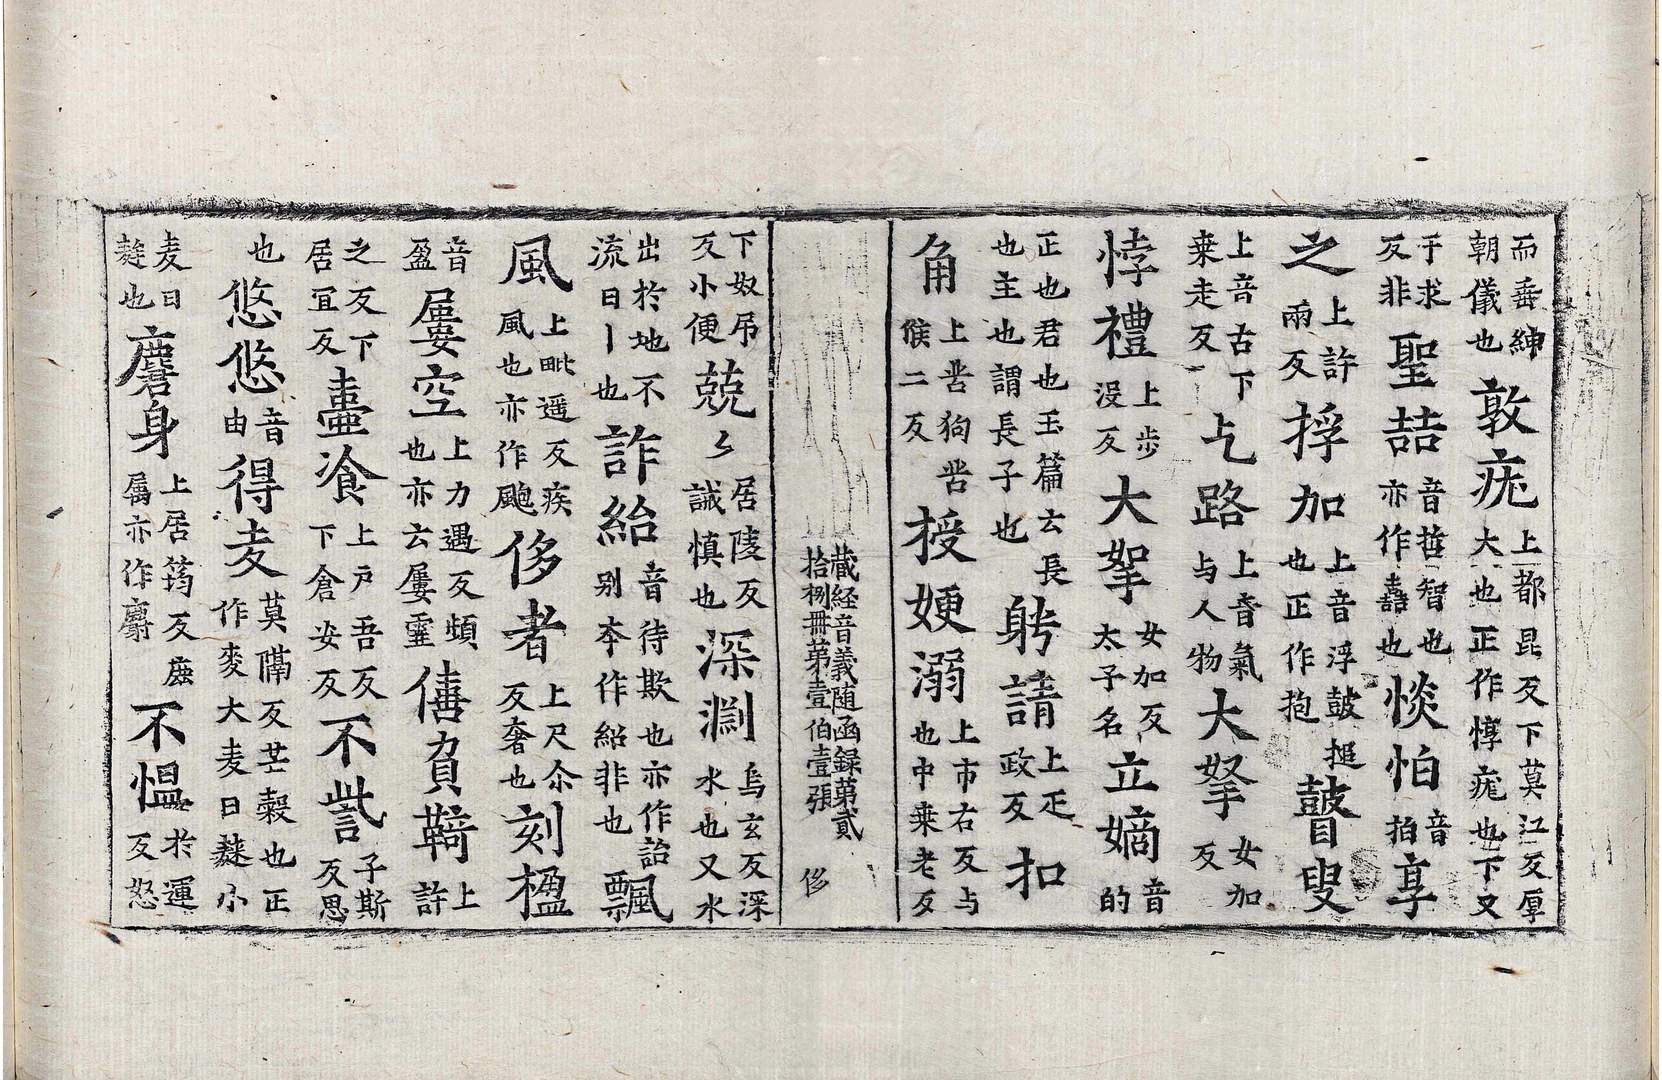 而垂紳朝儀也敦疣上都昆反下莫江反厚大也正作惇痝也下又
于求反非聖喆音哲智也亦作嚞也惔怕音拍享
之上許兩反捊加上音浮皷搥也正作抱瞽叟
上音古下桒走反乞路上音氣与人物大拏女加反
悖禮上步沒反大挐女加反太子名立嫡音的
正也君也玉篇云長也主也謂長子也躬請上疋政反扣
角上苦狗苦候二反授㛐溺上市右反与也中桒老反
藏経音義随函録第貳
拾捌冊第壹伯壹張 侈
下奴吊反小便兢〻居陵反誡慎也深渊烏玄反深水也又水
出於地不流曰丨也詐紿音待欺也亦作詒别夲作紹非也飄
風上毗遥反疾風也亦作颮侈者上尺尒反奢也刻楹
音盈屢空上力遇反頻也亦云屢䨥僖負鞿上許
之反下居冝反壷湌上户吾反下倉安反不訾子斯反思
也悠悠音由得麦莫隔反芒榖也正作麥大麦曰䴬小
麦曰䴹也麏身上居筠反麃属亦作麕不愠於運反怒